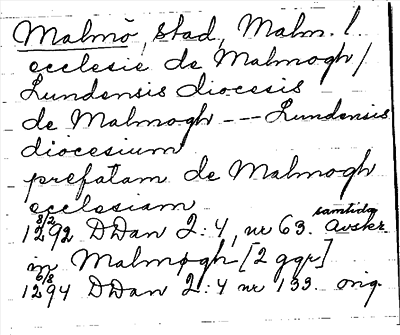 Malmö, stad, Malm. l.
ecclesie de Malmogh/
Lundensis diocesis
de Malmogh --- Lundensis
diocesium
prefatam de Malmogh
ecclesiam
1292 8/2 DDan 2:4, nr 63. samtida Avskr.
in Malmøgh [2 ggr]
1294 6/8 DDan 2:4 nr 133. orig.